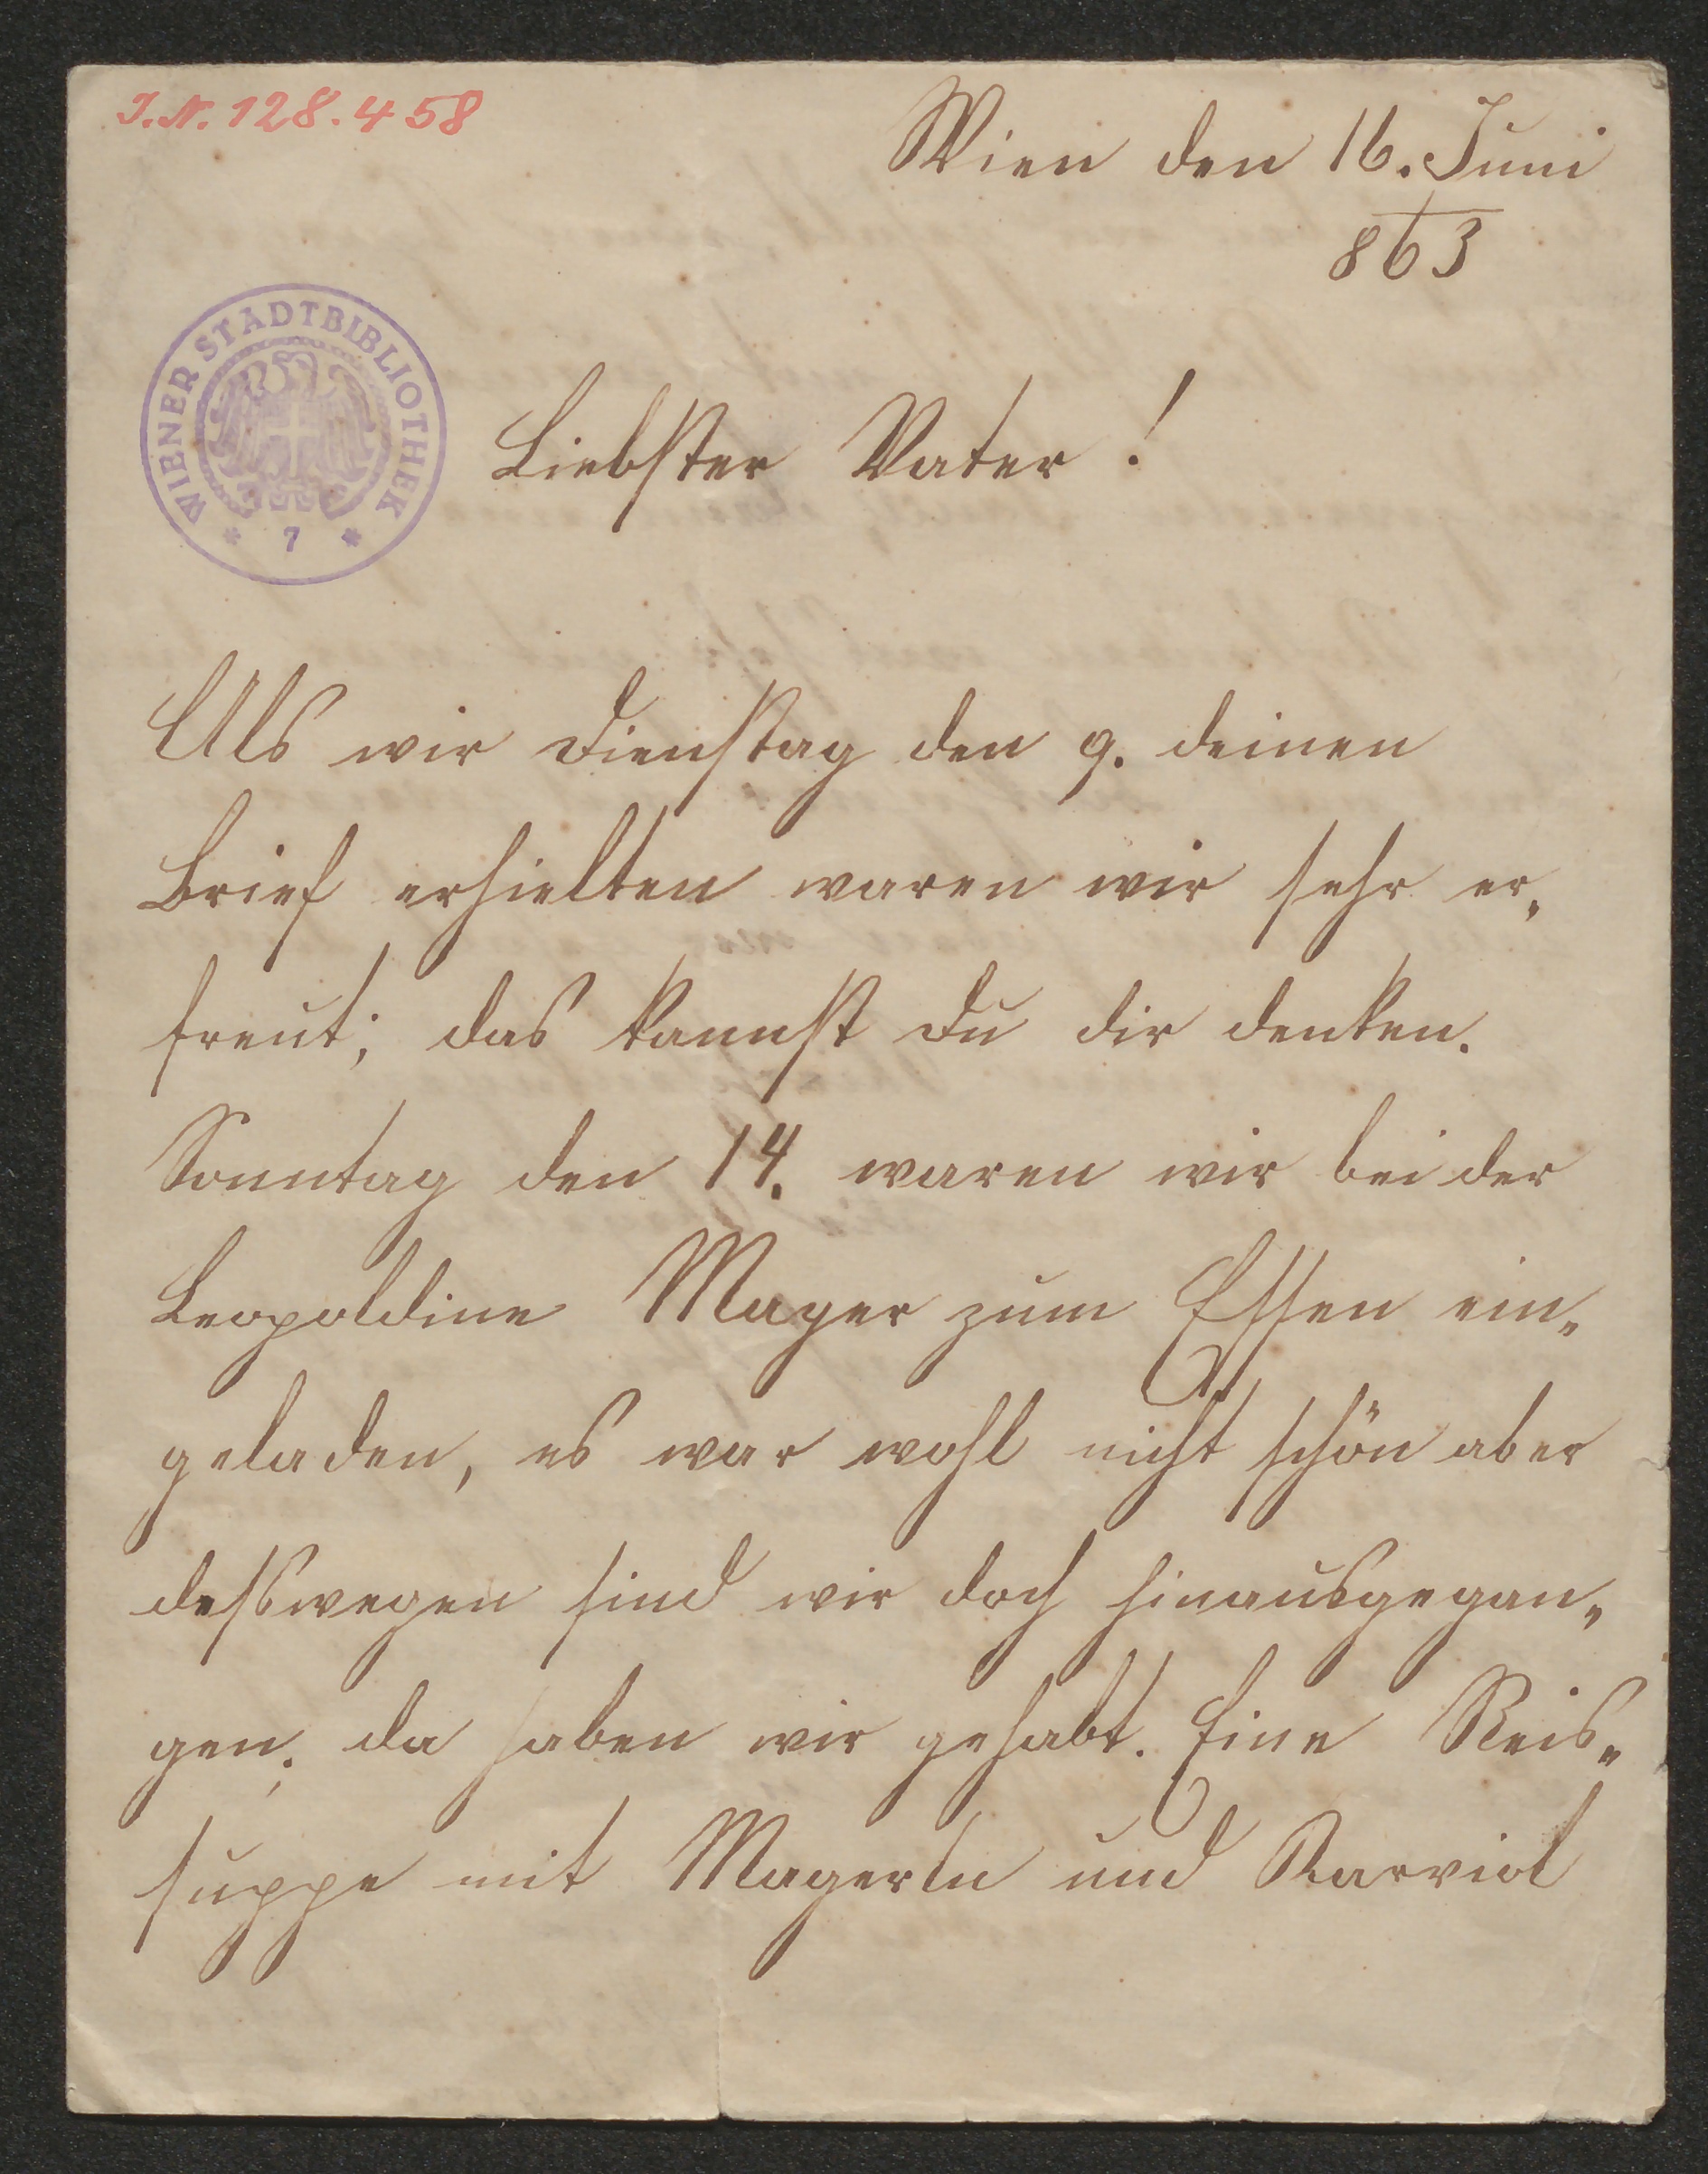 I.N. 128.458
Wien den 16. Juni
863
WIENER STADTBIBLIOTHEK
* 7 *
Liebster Vater!
Als wir Dienstag den 9. deinen
Brief erhielten waren wir sehr er„
freut; das kannst du dir denken.
Sonntag den 14. waren wir bei der
Leopoldine Mayer zum Essen ein„
geladen, es war wohl nicht schön aber
desswegen sind wir doch hinausgegan„
gen; da haben wir gehabt. Eine Reis„
suppe mit Magerln und Karviol